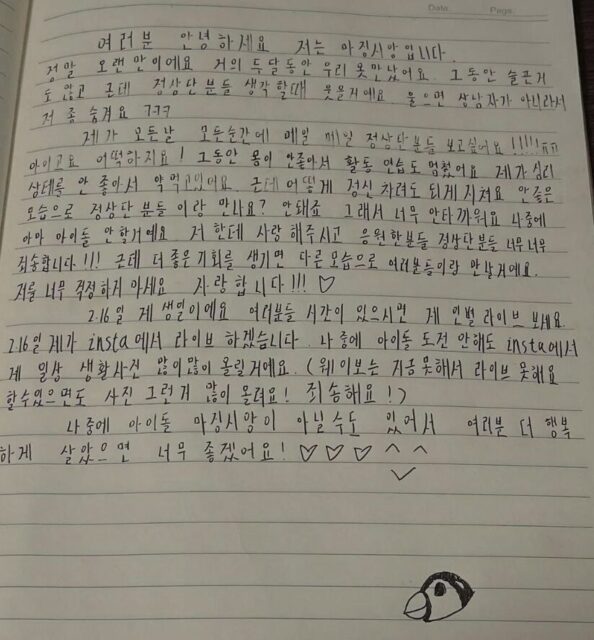 Date. Page.
여러분 안녕하세요 저는 마징시앙입니다.
정말 오랜만이에요 거의 두달동안 우리 못만났어요. 그동안 슬픈거
도 많고 근데 정상단분들 생각할때 웃을거예요. 울으면 상남자가 아니라서
저 좀 숨겨요 ㅋㅋㅋ
제가 모든날 모든순간에 매일 매일 정상단분들 보고싶어요!!!!!ㅠㅠ
아이고요 어떡하지요! 그동안 몸이 안좋아서 활동 연습도 멈췄어요 제가 심리
상태를 안 좋아서 약먹고있어요. 근데 어떻게 정신 차려도 되게 지쳐요 안좋은
모습으로 정상단분들 이랑 만나요? 안돼죠 그래서 너무 안타까워요 나중에
아마 아이돌 안할거예요 저 한테 사랑 해주시고 응원한분들 정상단분들 너무너무
죄송합니다!!! 근데 더 좋은 기회를 생기면 다른모습으로 여러분들이랑 만날거예요.
저를 너무 걱정하지 마세요 사랑합니다!!! ♡
2.16일 제 생일이에요 여러분들 시간이 있으시면 제 인별 라이브 보세요.
2.16일 제가 insta에서 라이브 하겠습니다. 나중에 아이돌 도전 안해도 insta에서
제 일상 생활사진 많이많이 올릴거예요. (웨이보는 지금못해서 라이브 못해요
할수있으면도 사진 그런거 많이 올려요! 죄송해요!)
나중에 아이돌 마징시앙이 아닐수도 있어서 여러분 더 행복
하게 살았으면 너무 좋겠어요! ♡♡♡ ^ ^